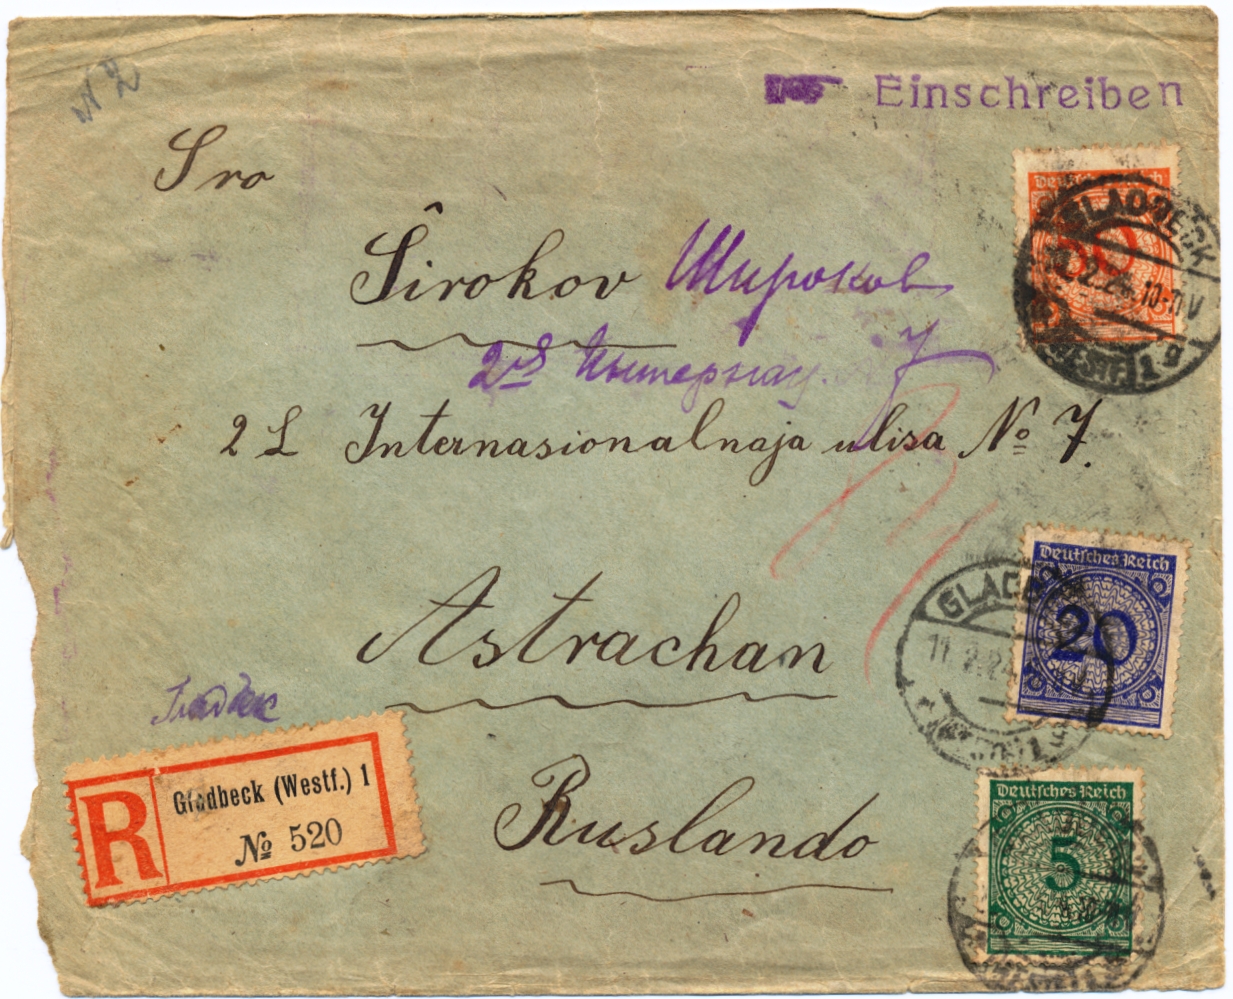 N 2
Einschreiben
Sro
Ŝirokov Широков
7
2 L Internasionalnaja ulisa № 7.
Astrachan
Ruslando
R
Gladbeck (Westf.) 1
№ 520
Deutsches Reich
GLADBECK
2.24 10-11V
Deutsches Reich
20
GLADB
11.2.24
Deutsches Reich
5